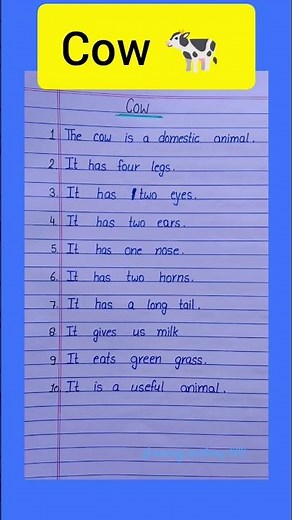 Cow 🐄
Cow
1. The cow is a domestic animal.
2. It has four legs.
3. It has two eyes.
4. It has two ears.
5. It has one nose.
6. It has two horns.
7. It has a long tail.
8. It gives us milk
9. It eats green grass.
10. It is a useful animal.